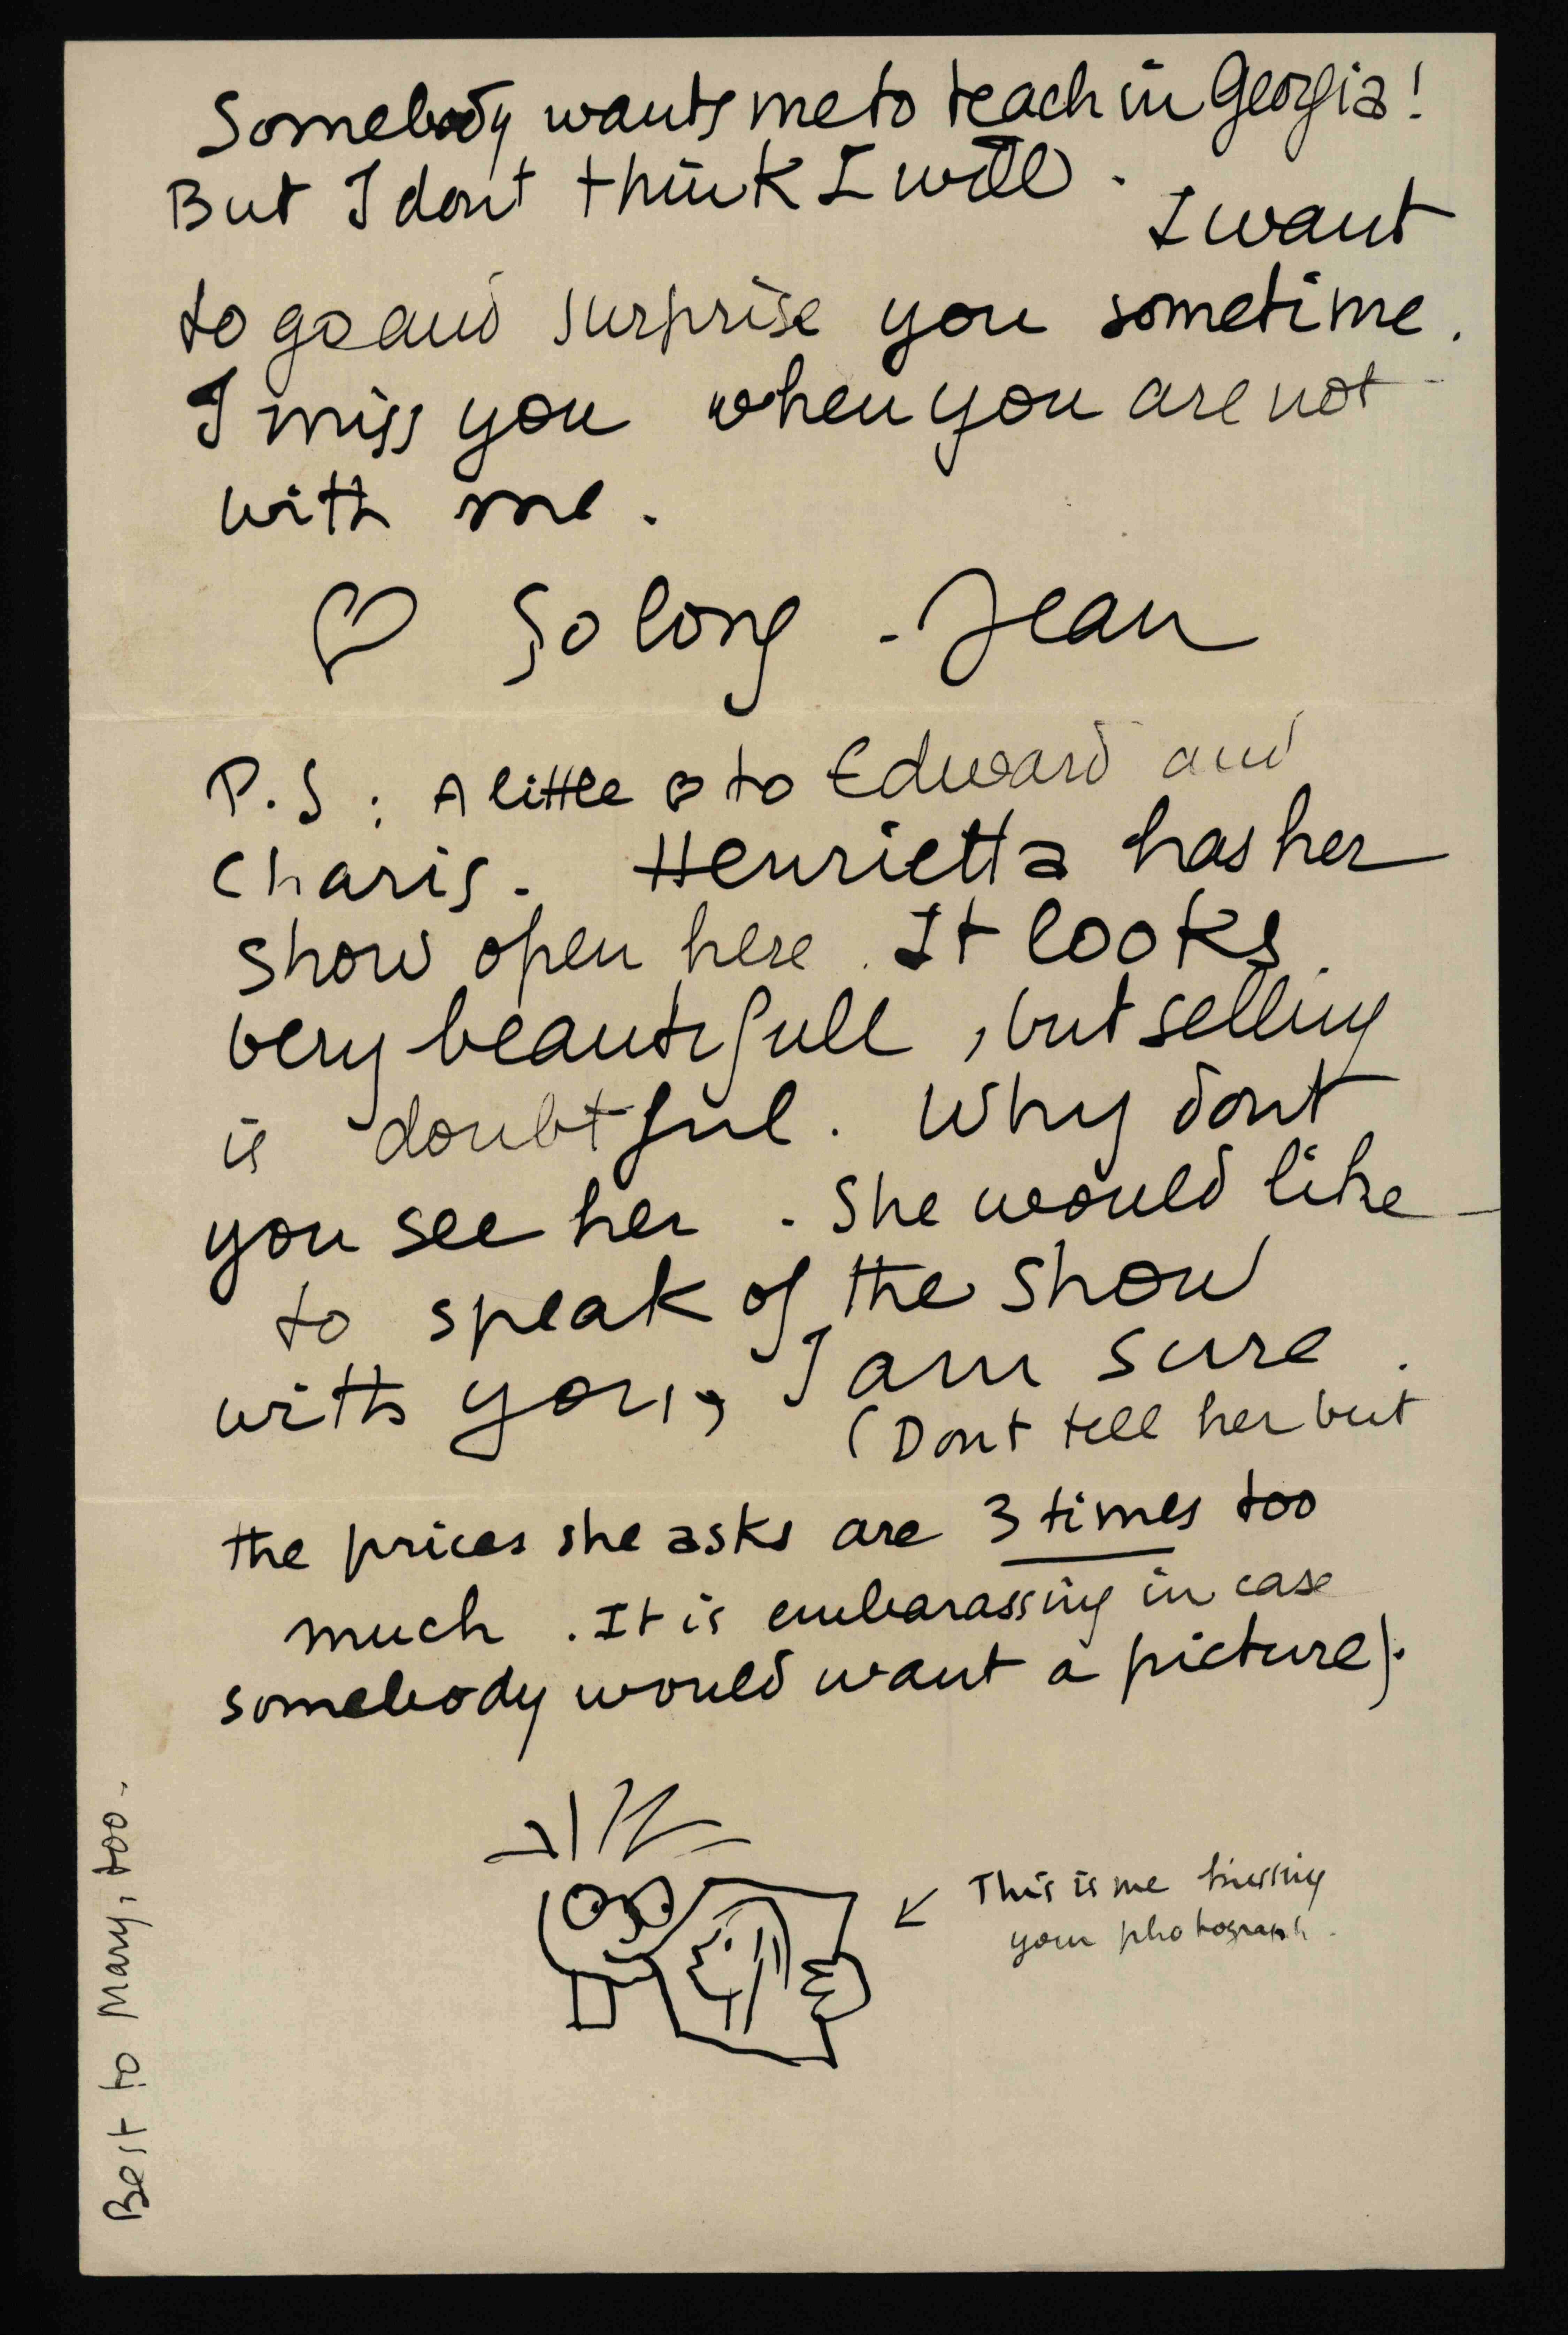 Somebody wants me to teach in Georgia!
But I dont think I will.
I want
to go and surprise you sometime.
I miss you when you are not
with me.
♡ So long - Jean
P.S: A little ♡ to Edward and
Charis. Henrietta has her
show open here. It looks
very beautifull, but selling
is doubtful. Why dont
you see her. She would like
to speak of the show
with you, I am sure.
(Dont tell her but
the prices she asks are 3 times too
much. It is embarassing in case
somebody would want a picture).
This is me kissing
your photograph.
Best to Mary, too.